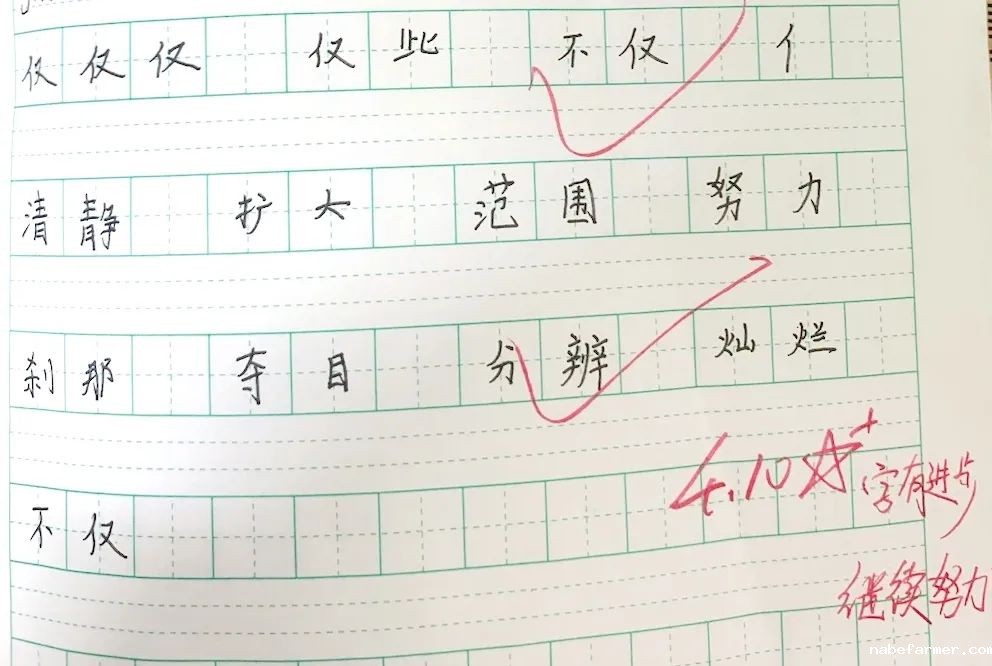 仅 仅 仅 仅 些 不 仅 亻
清 静 扩 大 范 围 努 力
刹 那 夺 目 分 辨 灿 烂
4.10 ☆+ 字有进步
不 仅
继续努力
nabefarmer.com